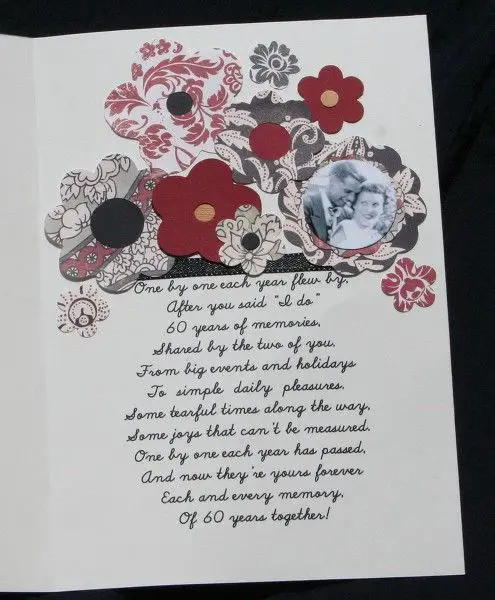 One by one each year flew by,
After you said "I do"
60 years of memories,
Shared by the two of you.
From big events and holidays
To simple daily pleasures.
Some tearful times along the way,
Some joys that can't be measured.
One by one each year has passed,
And now they're yours forever
Each and every memory,
Of 60 years together!